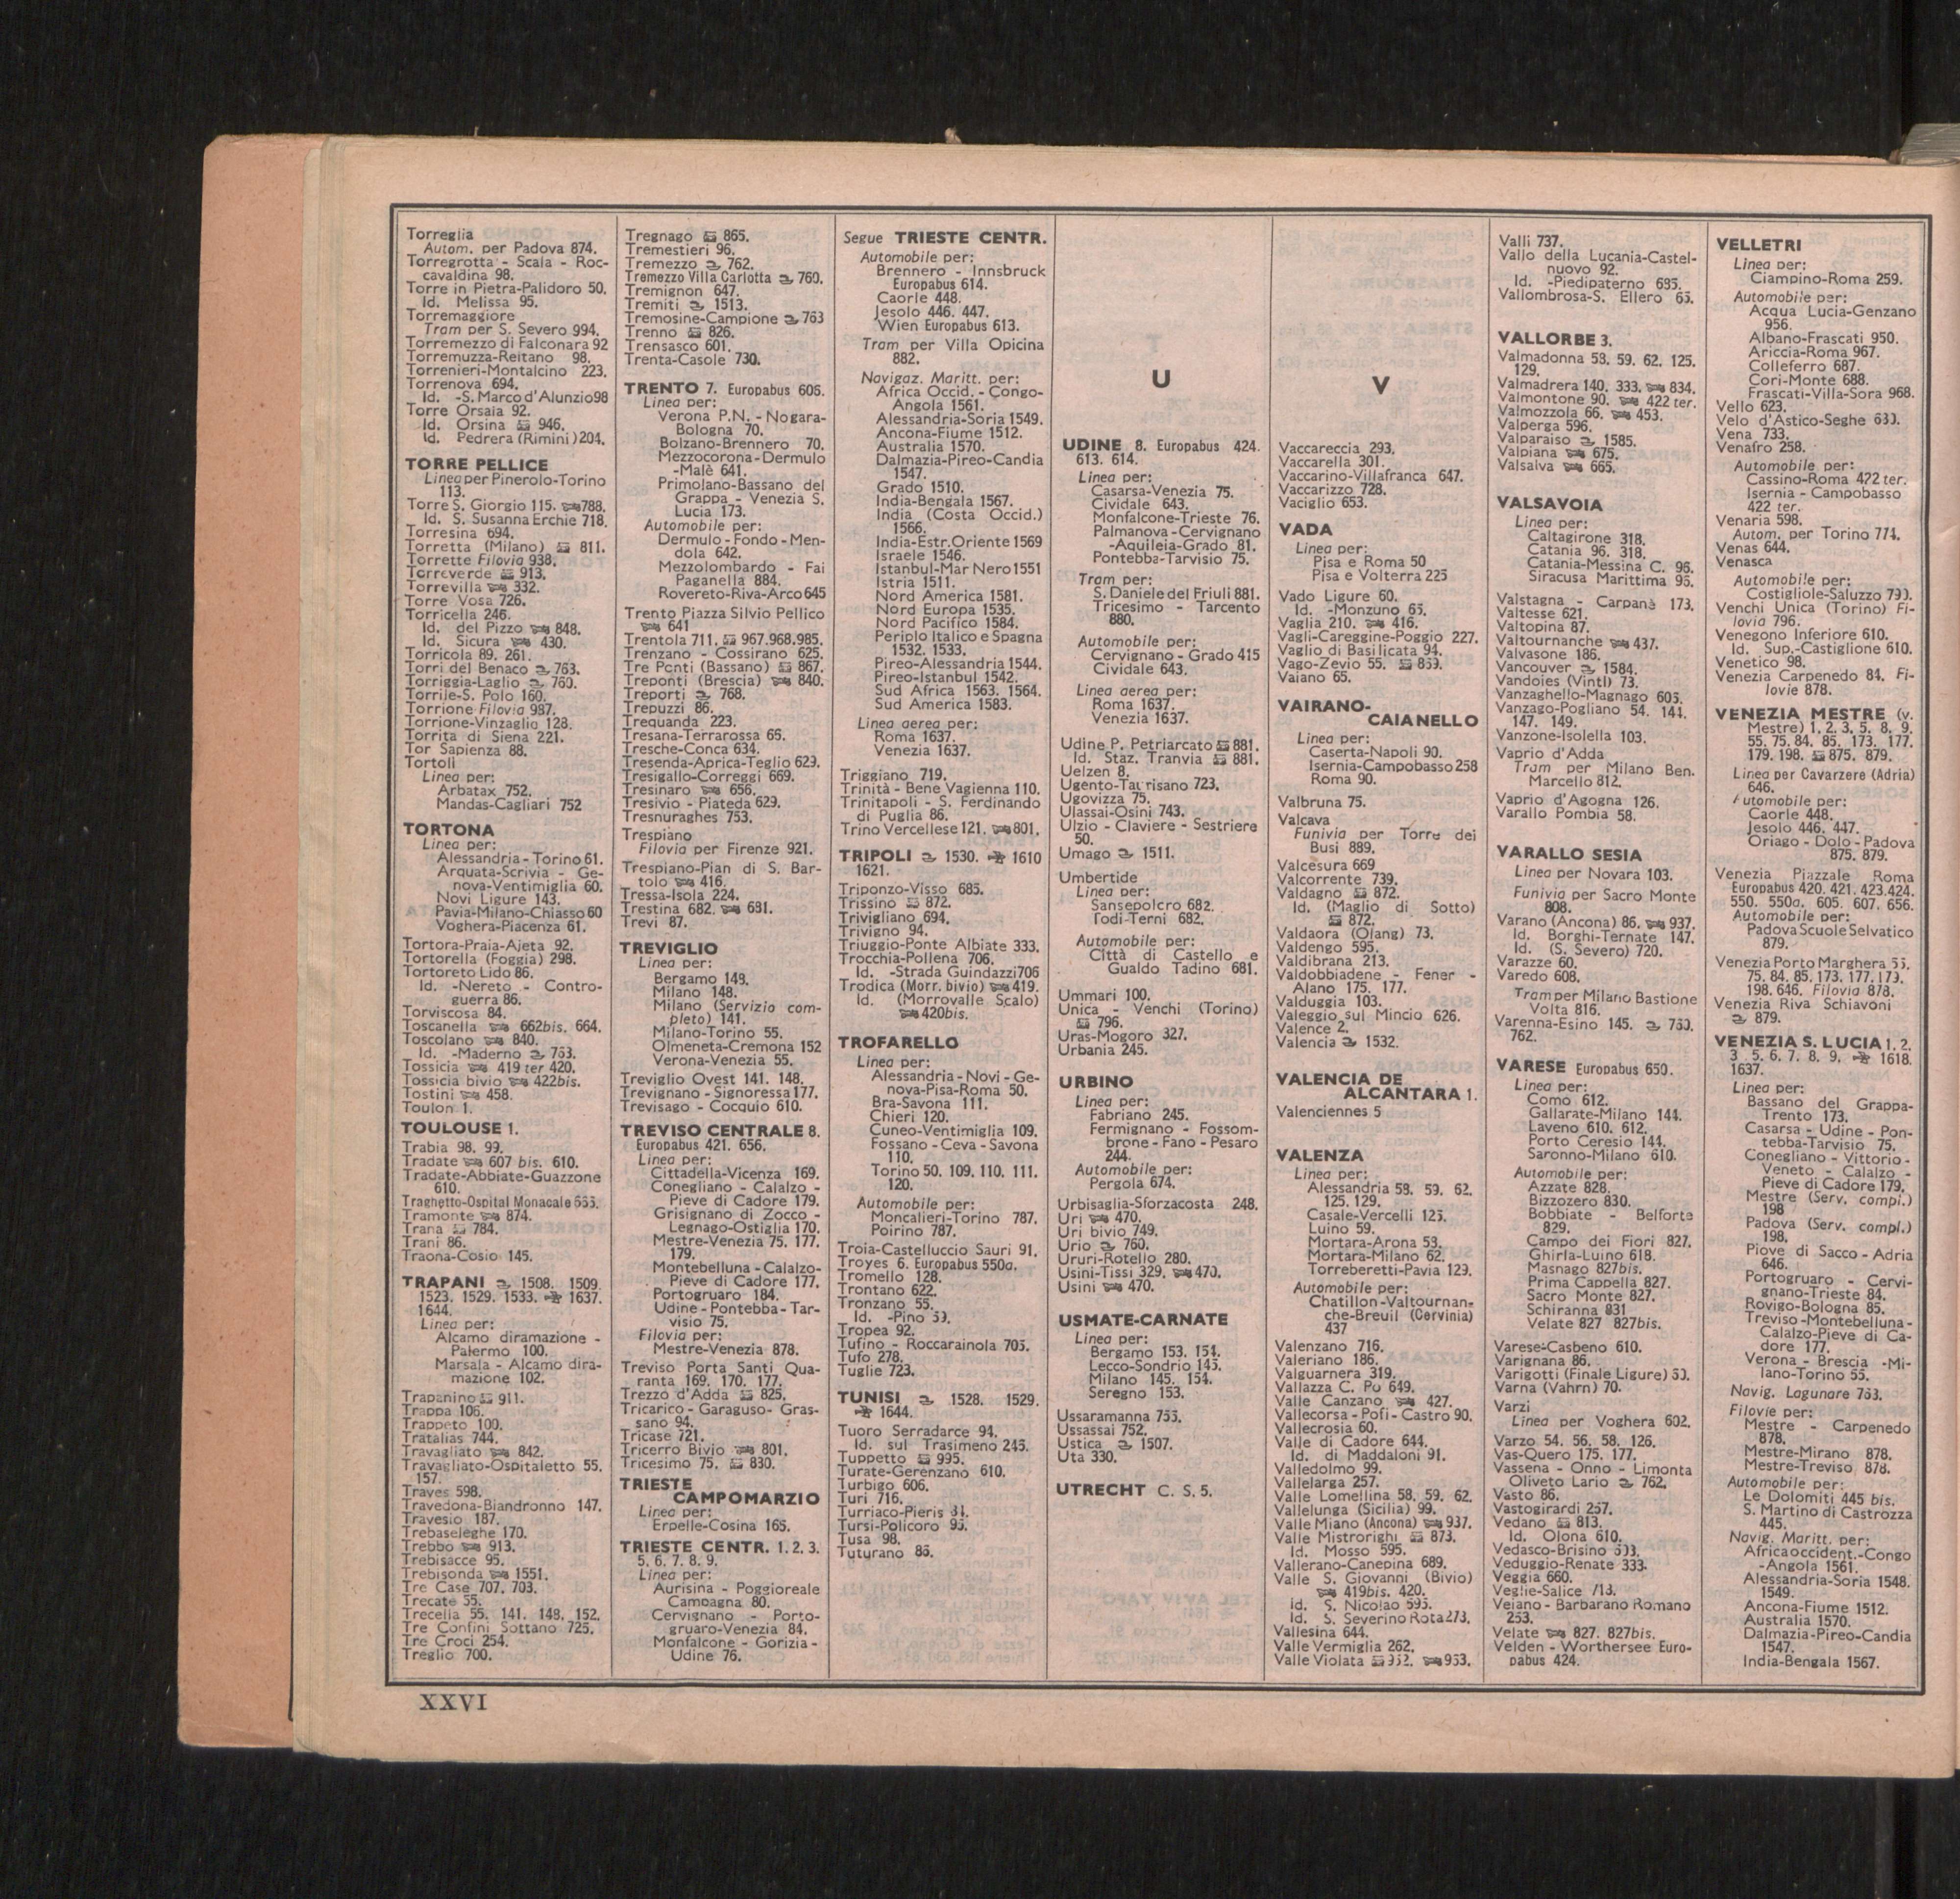 Torreglia
Autom. per Padova 874.
Torregrotta - Scala - Roc-
cavaldina 98.
Torre in Pietra-Palidoro 50.
Id. Melissa 95.
Torremaggiore
Tram per S. Severo 994.
Torremezzo di Falconara 92
Torremuzza-Reitano 98.
Torrenieri-Montalcino 223.
Torrenova 694.
Id. -S. Marco d'Alunzio 98
Torre Orsaia 92.
Id. Orsina 946.
Id. Pedrera (Rimini) 204.
TORRE PELLICE
Linea per Pinerolo-Torino
113.
Torre S. Giorgio 115. 788.
Id. S. Susanna Erchie 718.
Torresina 694.
Torretta (Milano) 811.
Torrette Filovia 938.
Torreverde 913.
Torrevilla 332.
Torre Vosa 726.
Torricella 246.
Id. del Pizzo 848.
Id. Sicura 430.
Torricola 89. 261.
Torri del Benaco 763.
Torriggia-Laglio 760.
Torrile-S. Polo 160.
Torrione Filovia 987.
Torrione-Vinzaglio 128.
Torrita di Siena 221.
Tor Sapienza 88.
Tortolì
Linea per:
Arbatax 752.
Mandas-Cagliari 752
TORTONA
Linea per:
Alessandria - Torino 61.
Arquata-Scrivia - Ge-
nova-Ventimiglia 60.
Novi Ligure 143.
Pavia-Milano-Chiasso 60
Voghera-Piacenza 61.
Tortora-Praia-Ajeta 92.
Tortorella (Foggia) 298.
Tortoreto Lido 86.
Id. -Nereto - Contro-
guerra 86.
Torviscosa 84.
Toscanella 662bis. 664.
Toscolano 840.
Id. -Maderno 763.
Tossicia 419 ter 420.
Tossicia bivio 422bis.
Tostini 458.
Toulon 1.
TOULOUSE 1.
Trabia 98. 99.
Tradate 607 bis. 610.
Tradate-Abbiate-Guazzone
610.
Traghetto-Ospital Monacale 665.
Tramonte 874.
Trana 784.
Trani 86.
Traona-Cosio 145.
TRAPANI 1508. 1509.
1523. 1529. 1533. 1637.
1644.
Linea per:
Alcamo diramazione -
Palermo 100.
Marsala - Alcamo dira-
mazione 102.
Trapanino 911.
Trappa 106.
Trappeto 100.
Tratalias 744.
Travagliato 842.
Travagliato-Ospitaletto 55.
157.
Traves 598.
Travedona-Biandronno 147.
Travesio 187.
Trebaseleghe 170.
Trebbo 913.
Trebisacce 95.
Trebisonda 1551.
Tre Case 707. 703.
Trecate 55.
Trecella 55. 141. 148. 152.
Tre Confini Sottano 725.
Tre Croci 254.
Treglio 700.
Tregnago 865.
Tremestieri 96.
Tremezzo 762.
Tremezzo Villa Carlotta 760.
Tremignon 647.
Tremiti 1513.
Tremosine-Campione 763
Trenno 826.
Trensasco 601.
Trenta-Casole 730.
TRENTO 7. Europabus 606.
Linea per:
Verona P.N. - Nogara-
Bologna 70.
Bolzano-Brennero 70.
Mezzocorona-Dermulo
-Malè 641.
Primolano-Bassano del
Grappa - Venezia S.
Lucia 173.
Automobile per:
Dermulo - Fondo - Men-
dola 642.
Mezzolombardo - Fai
Paganella 884.
Rovereto-Riva-Arco 645
Trento Piazza Silvio Pellico
641
Trentola 711. 967.968.985.
Trenzano - Cossirano 625.
Tre Ponti (Bassano) 867.
Treponti (Brescia) 840.
Treporti 768.
Trepuzzi 86.
Trequanda 223.
Tresana-Terrarossa 66.
Tresche-Conca 634.
Tresenda-Aprica-Teglio 629.
Tresigallo-Correggi 669.
Tresinaro 656.
Tresivio - Piateda 629.
Tresnuraghes 753.
Trespiano
Filovia per Firenze 921.
Trespiano-Pian di S. Bar-
tolo 416.
Tressa-Isola 224.
Trestina 682. 681.
Trevi 87.
TREVIGLIO
Linea per:
Bergamo 149.
Milano 148.
Milano (Servizio com-
pleto) 141.
Milano-Torino 55.
Olmeneta-Cremona 152
Verona-Venezia 55.
Treviglio Ovest 141. 148.
Trevignano - Signoressa 177.
Trevisago - Cocquio 610.
TREVISO CENTRALE 8.
Europabus 421. 656.
Linea per:
Cittadella-Vicenza 169.
Conegliano - Calalzo -
Pieve di Cadore 179.
Grisignano di Zocco -
Legnago-Ostiglia 170.
Mestre-Venezia 75. 177.
179.
Montebelluna - Calalzo-
Pieve di Cadore 177.
Portogruaro 184.
Udine - Pontebba - Tar-
visio 75.
Filovia per:
Mestre-Venezia 878.
Treviso Porta Santi Qua-
ranta 169. 170. 177.
Trezzo d'Adda 825.
Tricarico - Garaguso- Gras-
sano 94.
Tricase 721.
Tricerro Bivio 801.
Tricesimo 75. 830.
TRIESTE
CAMPOMARZIO
Linea per:
Erpelle-Cosina 165.
TRIESTE CENTR. 1. 2. 3.
5. 6. 7. 8. 9.
Linea per:
Aurisina - Poggioreale
Campagna 80.
Cervignano - Porto-
gruaro-Venezia 84.
Monfalcone - Gorizia -
Udine 76.
Segue TRIESTE CENTR.
Automobile per:
Brennero - Innsbruck
Europabus 614.
Caorle 448.
Jesolo 446. 447.
Wien Europabus 613.
Tram per Villa Opicina
882.
Navigaz. Maritt. per:
Africa Occid. - Congo-
Angola 1561.
Alessandria-Soria 1549.
Ancona-Fiume 1512.
Australia 1570.
Dalmazia-Pireo-Candia
1547.
Grado 1510.
India-Bengala 1567.
India (Costa Occid.)
1566.
India-Estr.Oriente 1569
Israele 1546.
Istanbul-Mar Nero 1551
Istria 1511.
Nord America 1581.
Nord Europa 1535.
Nord Pacifico 1584.
Periplo Italico e Spagna
1532. 1533.
Pireo-Alessandria 1544.
Pireo-Istanbul 1542.
Sud Africa 1563. 1564.
Sud America 1583.
Linea aerea per:
Roma 1637.
Venezia 1637.
Triggiano 719.
Trinità - Bene Vagienna 110.
Trinitapoli - S. Ferdinando
di Puglia 86.
Trino Vercellese 121. 801.
TRIPOLI 1530. 1610
1621.
Triponzo-Visso 685.
Trissino 872.
Trivigliano 694.
Trivigno 94.
Triuggio-Ponte Albiate 333.
Trocchia-Pollena 706.
Id. -Strada Guindazzi 706
Trodica (Morr. bivio) 419.
Id. (Morrovalle Scalo)
420bis.
TROFARELLO
Linea per:
Alessandria - Novi - Ge-
nova-Pisa-Roma 50.
Bra-Savona 111.
Chieri 120.
Cuneo-Ventimiglia 109.
Fossano - Ceva - Savona
110.
Torino 50. 109. 110. 111.
120.
Automobile per:
Moncalieri-Torino 787.
Poirino 787.
Troia-Castelluccio Sauri 91.
Troyes 6. Europabus 550a.
Tromello 128.
Trontano 622.
Tronzano 55.
Id. -Pino 59.
Tropea 92.
Tufino - Roccarainola 705.
Tufo 278.
Tuglie 723.
TUNISI 1528. 1529.
1644.
Tuoro Serradarce 94.
Id. sul Trasimeno 245.
Tuppetto 995.
Turate-Gerenzano 610.
Turbigo 606.
Turi 716.
Turriaco-Pieris 84.
Tursi-Policoro 95.
Tusa 98.
Tuturano 86.
U
UDINE 8. Europabus 424.
613. 614.
Linea per:
Casarsa-Venezia 75.
Cividale 643.
Monfalcone-Trieste 76.
Palmanova - Cervignano
-Aquileia-Grado 81.
Pontebba-Tarvisio 75.
Tram per:
S. Daniele del Friuli 881.
Tricesimo - Tarcento
880.
Automobile per:
Cervignano - Grado 415
Cividale 643.
Linea aerea per:
Roma 1637.
Venezia 1637.
Udine P. Petriarcato 881.
Id. Staz. Tranvia 881.
Uelzen 8.
Ugento-Taurisano 723.
Ugovizza 75.
Ulassai-Osini 743.
Ulzio - Claviere - Sestriere
50.
Umago 1511.
Umbertide
Linea per:
Sansepolcro 682.
Todi-Terni 682.
Automobile per:
Città di Castello e
Gualdo Tadino 681.
Ummari 100.
Unica - Venchi (Torino)
796.
Uras-Mogoro 327.
Urbania 245.
URBINO
Linea per:
Fabriano 245.
Fermignano - Fossom-
brone - Fano - Pesaro
244.
Automobile per:
Pergola 674.
Urbisaglia-Sforzacosta 248.
Uri 470.
Uri bivio 749.
Urio 760.
Ururi-Rotello 280.
Usini-Tissi 329. 470.
Usini 470.
USMATE-CARNATE
Linea per:
Bergamo 153. 154.
Lecco-Sondrio 145.
Milano 145. 154.
Seregno 153.
Ussaramanna 755.
Ussassai 752.
Ustica 1507.
Uta 330.
UTRECHT C. S. 5.
V
Vaccareccia 293.
Vaccarella 301.
Vaccarino-Villafranca 647.
Vaccarizzo 728.
Vaciglio 653.
VADA
Linea per:
Pisa e Roma 50
Pisa e Volterra 225
Vado Ligure 60.
Id. -Monzuno 65.
Vaglia 210. 416.
Vagli-Careggine-Poggio 227.
Vaglio di Basilicata 94.
Vago-Zevio 55. 859.
Vaiano 65.
VAIRANO-
CAIANELLO
Linea per:
Caserta-Napoli 90.
Isernia-Campobasso 258
Roma 90.
Valbruna 75.
Valcava
Funivia per Torre dei
Busi 889.
Valcesura 669
Valcorrente 739.
Valdagno 872.
Id. (Maglio di Sotto)
872.
Valdaora (Olang) 73.
Valdengo 595.
Valdibrana 213.
Valdobbiadene - Fener -
Alano 175. 177.
Valduggia 103.
Valeggio sul Mincio 626.
Valence 2.
Valencia 1532.
VALENCIA DE
ALCANTARA 1.
Valenciennes 5
VALENZA
Linea per:
Alessandria 58. 59. 62.
125. 129.
Casale-Vercelli 125.
Luino 59.
Mortara-Arona 53.
Mortara-Milano 62.
Torreberetti-Pavia 129.
Automobile per:
Chatillon-Valtournan-
che-Breuil (Cervinia)
437
Valenzano 716.
Valeriano 186.
Valguarnera 319.
Vallazza C. Po 649.
Valle Canzano 427.
Vallecorsa - Pofi - Castro 90.
Vallecrosia 60.
Valle di Cadore 644.
Id. di Maddaloni 91.
Valledolmo 99.
Vallelarga 257.
Valle Lomellina 58. 59. 62.
Vallelunga (Sicilia) 99.
Valle Miano (Ancona) 937.
Valle Mistrorighi 873.
Id. Mosso 595.
Vallerano-Canepina 689.
Valle S. Giovanni (Bivio)
419bis. 420.
Id. S. Nicolao 595.
Id. S. Severino Rota 273.
Vallesina 644.
Valle Vermiglia 262.
Valle Violata 952. 953.
Valli 737.
Vallo della Lucania-Castel-
nuovo 92.
Id. -Piedipaterno 685.
Vallombrosa-S. Ellero 65.
VALLORBE 3.
Valmadonna 58. 59. 62. 125.
129.
Valmadrera 140. 333. 834.
Valmontone 90. 422 ter.
Valmozzola 66. 453.
Valperga 596.
Valparaiso 1585.
Valpiana 675.
Valsalva 665.
VALSAVOIA
Linea per:
Caltagirone 318.
Catania 96. 318.
Catania-Messina C. 96.
Siracusa Marittima 96.
Valstagna - Carpanè 173.
Valtesse 621.
Valtopina 87.
Valtournanche 437.
Valvasone 186.
Vancouver 1584.
Vandoies (Vintl) 73.
Vanzaghello-Magnago 606.
Vanzago-Pogliano 54. 141.
147. 149.
Vanzone-Isolella 103.
Vaprio d'Adda
Tram per Milano Ben.
Marcello 812.
Vaprio d'Agogna 126.
Varallo Pombia 58.
VARALLO SESIA
Linea per Novara 103.
Funivia per Sacro Monte
808.
Varano (Ancona) 86. 937.
Id. Borghi-Ternate 147.
Id. (S. Severo) 720.
Varazze 60.
Varedo 608.
Tram per Milano Bastione
Volta 816.
Varenna-Esino 145. 760.
762.
VARESE Europabus 650.
Linea per:
Como 612.
Gallarate-Milano 144.
Laveno 610. 612.
Porto Ceresio 144.
Saronno-Milano 610.
Automobile per:
Azzate 828.
Bizzozero 830.
Bobbiate - Belforte
829.
Campo dei Fiori 827.
Ghirla-Luino 618.
Masnago 827bis.
Prima Cappella 827.
Sacro Monte 827.
Schiranna 831
Velate 827 827bis.
Varese-Casbeno 610.
Varignana 86.
Varigotti (Finale Ligure) 60.
Varna (Vahrn) 70.
Varzi
Linea per Voghera 602.
Varzo 54. 56. 58. 126.
Vas-Quero 175. 177.
Vassena - Onno - Limonta
Oliveto Lario 762.
Vasto 86.
Vastogirardi 257.
Vedano 813.
Id. Olona 610.
Vedasco-Brisino 593.
Veduggio-Renate 333.
Veggia 660.
Veglie-Salice 713.
Veiano - Barbarano Romano
253.
Velate 827. 827bis.
Velden - Worthersee Euro-
pabus 424.
VELLETRI
Linea per:
Ciampino-Roma 259.
Automobile per:
Acqua Lucia-Genzano
956.
Albano-Frascati 950.
Ariccia-Roma 967.
Colleferro 687.
Cori-Monte 688.
Frascati-Villa-Sora 968.
Vello 623.
Velo d'Astico-Seghe 630.
Vena 733.
Venafro 258.
Automobile per:
Cassino-Roma 422 ter.
Isernia - Campobasso
422 ter.
Venaria 598.
Autom. per Torino 774.
Venas 644.
Venasca
Automobile per:
Costigliole-Saluzzo 790.
Venchi Unica (Torino) Fi-
lovia 796.
Venegono Inferiore 610.
Id. Sup.-Castiglione 610.
Venetico 98.
Venezia Carpenedo 84. Fi-
lovie 878.
VENEZIA MESTRE (v.
Mestre) 1. 2. 3. 5. 8. 9.
55. 75. 84. 85. 173. 177.
179. 198. 875. 879.
Linea per Cavarzere (Adria)
646.
Automobile per:
Caorle 448.
Jesolo 446. 447.
Oriago - Dolo - Padova
875. 879.
Venezia Piazzale Roma
Europabus 420. 421. 423.424.
550. 550a. 605. 607. 656.
Automobile per:
Padova Scuole Selvatico
879.
Venezia Porto Marghera 55.
75. 84. 85. 173. 177. 179.
198. 646. Filovia 878.
Venezia Riva Schiavoni
879.
VENEZIA S. LUCIA 1. 2.
3 5. 6. 7. 8. 9. 1618.
1637.
Linea per:
Bassano del Grappa-
Trento 173.
Casarsa - Udine - Pon-
tebba-Tarvisio 75.
Conegliano - Vittorio -
Veneto - Calalzo -
Pieve di Cadore 179.
Mestre (Serv. compl.)
198
Padova (Serv. compl.)
198.
Piove di Sacco - Adria
646.
Portogruaro - Cervi-
gnano-Trieste 84.
Rovigo-Bologna 85.
Treviso -Montebelluna -
Calalzo-Pieve di Ca-
dore 177.
Verona - Brescia -Mi-
lano-Torino 55.
Navig. Lagunare 763.
Filovie per:
Mestre - Carpenedo
878.
Mestre-Mirano 878.
Mestre-Treviso 878.
Automobile per:
Le Dolomiti 445 bis.
S. Martino di Castrozza
445.
Navig. Maritt. per:
Africa occident.-Congo
-Angola 1561.
Alessandria-Soria 1548.
1549.
Ancona-Fiume 1512.
Australia 1570.
Dalmazia-Pireo-Candia
1547.
India-Bengala 1567.
XXVI